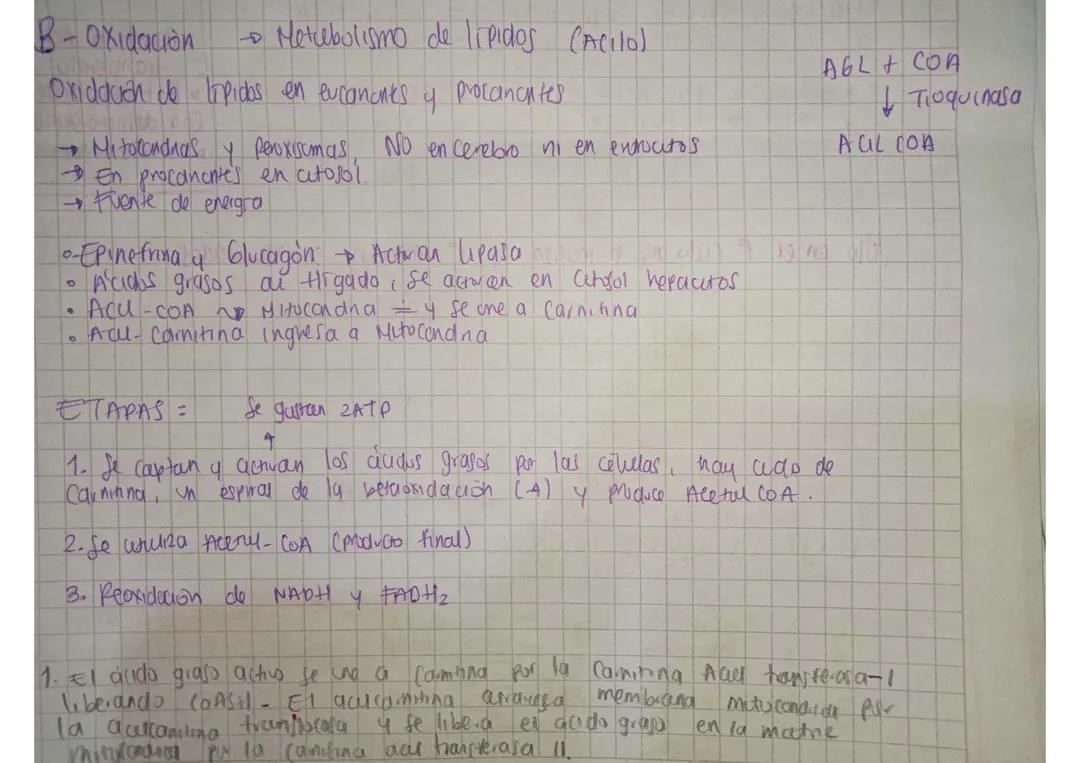 B-Oxidación → Metabolismo de lípidos (Acilo)
AGL + COA
↓ Tioquinasa
ACIL COA
Oxidación de lípidos en eucariontes y procariontes
→ Mitocondrias y peroxisomas, NO en cerebro ni en eritrocitos
→ En procariontes en citosol.
→ Fuente de energía
o-Epinefrina y Glucagón: → Activan lipasa
• Ácidos grasos al Hígado, se activan en citosol hepatocitos
• Acil-COA → Mitocondria y se une a Carnitina
• Acil-Carnitina ingresa a Mitocondria
ETAPAS = Se gastan 2ATP
↑
1. Se captan y activan los ácidos grasos por las células, hay ciclo de
Carnitina, un espiral de la betaoxidación (4) y produce Acetil COA.
2. Se utiliza Acetil-COA (producto final)
3. Reoxidación de NADH y FADH2
1. El ácido graso activo se une a Carnitina por la Carnitina Acil transferasa-1
liberando COASH - El acilcarnitina atraviesa membrana mitocondrial por
la acilcarnitina translocasa y se libera el ácido graso en la matriz
mitocondrial por la Carnitina acil transferasa II.